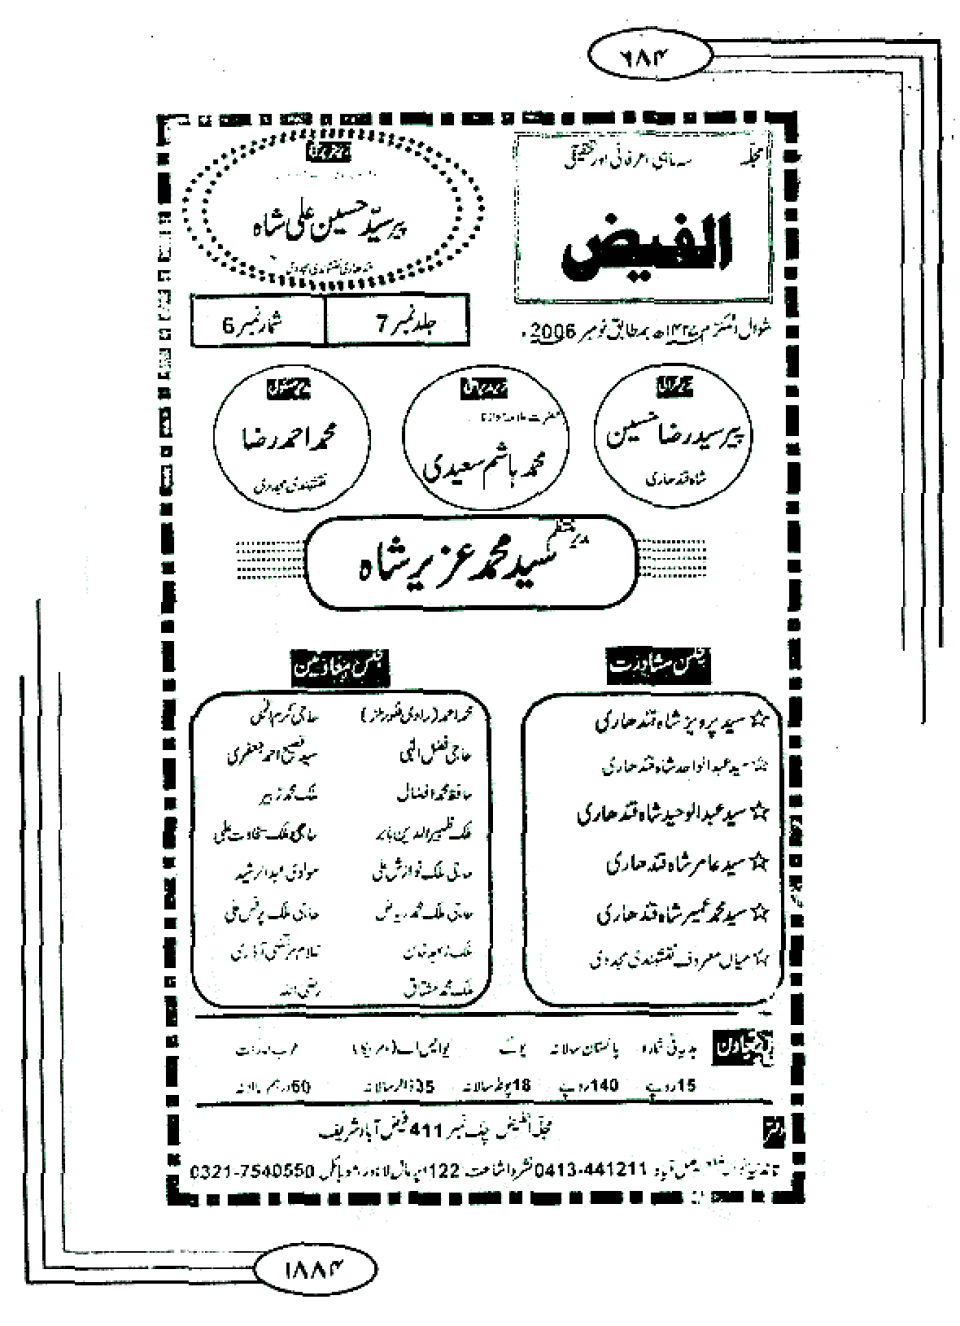 ۶۸۴
مجلّہ سہ ماہی عرفانی اور تحقیقی
الفیض
شوال المکرم ۱۴۲۷ھ بمطابق نومبر 2006ء
پیر سیّد حسین علی شاہ
قندھاری نقشبندی مجددی
جلد نمبر 7 شمارہ نمبر 6
زیر نگرانی
پیر سید رضا حسین
شاہ قندھاری
حضرت علامہ مولانا
محمد ہاشم سعیدی
محمد احمد رضا
نقشبندی مجددی
مدیر منتظم
سید محمد عزیر شاہ
مجلس مشاورت
☆ سید پرویز شاہ قندھاری
☆ سید عبدالواحد شاہ قندھاری
☆ سید عبدالوحید شاہ قندھاری
☆ سید عامر شاہ قندھاری
☆ سید محمد عمیر شاہ قندھاری
☆ میاں معروف نقشبندی مجددی
مجلس معاونین
محمد احمد (راوی فلورملز) حاجی کرم الٰہی
حاجی فضل الٰہی سید فصیح احمد جعفری
حافظ محمد افضال ملک محمد زبیر
ملک ظہیر الدین بابر حاجی ملک سخاوت علی
حاجی ملک نوازش علی مولوی عبدالرشید
حاجی ملک محمد ریاض حاجی ملک یونس علی
ملک زعیم خان غلام مرتضیٰ آذری
ملک محمد مشتاق رضی اللہ
ہدیہ فی شمارہ پاکستان سالانہ یوکے یو ایس اے (امریکا) عرب امارات
15 روپے 140 روپے 18 پونڈ سالانہ 35 ڈالر سالانہ 60 درہم سالانہ
دفتر مجلّہ الفیض چک نمبر 411 فیض آباد شریف
فیصل آباد 0413-441211 نشر و اشاعت 122 اپر مال لاہور موبائل 0321-7540550
۱۸۸۴